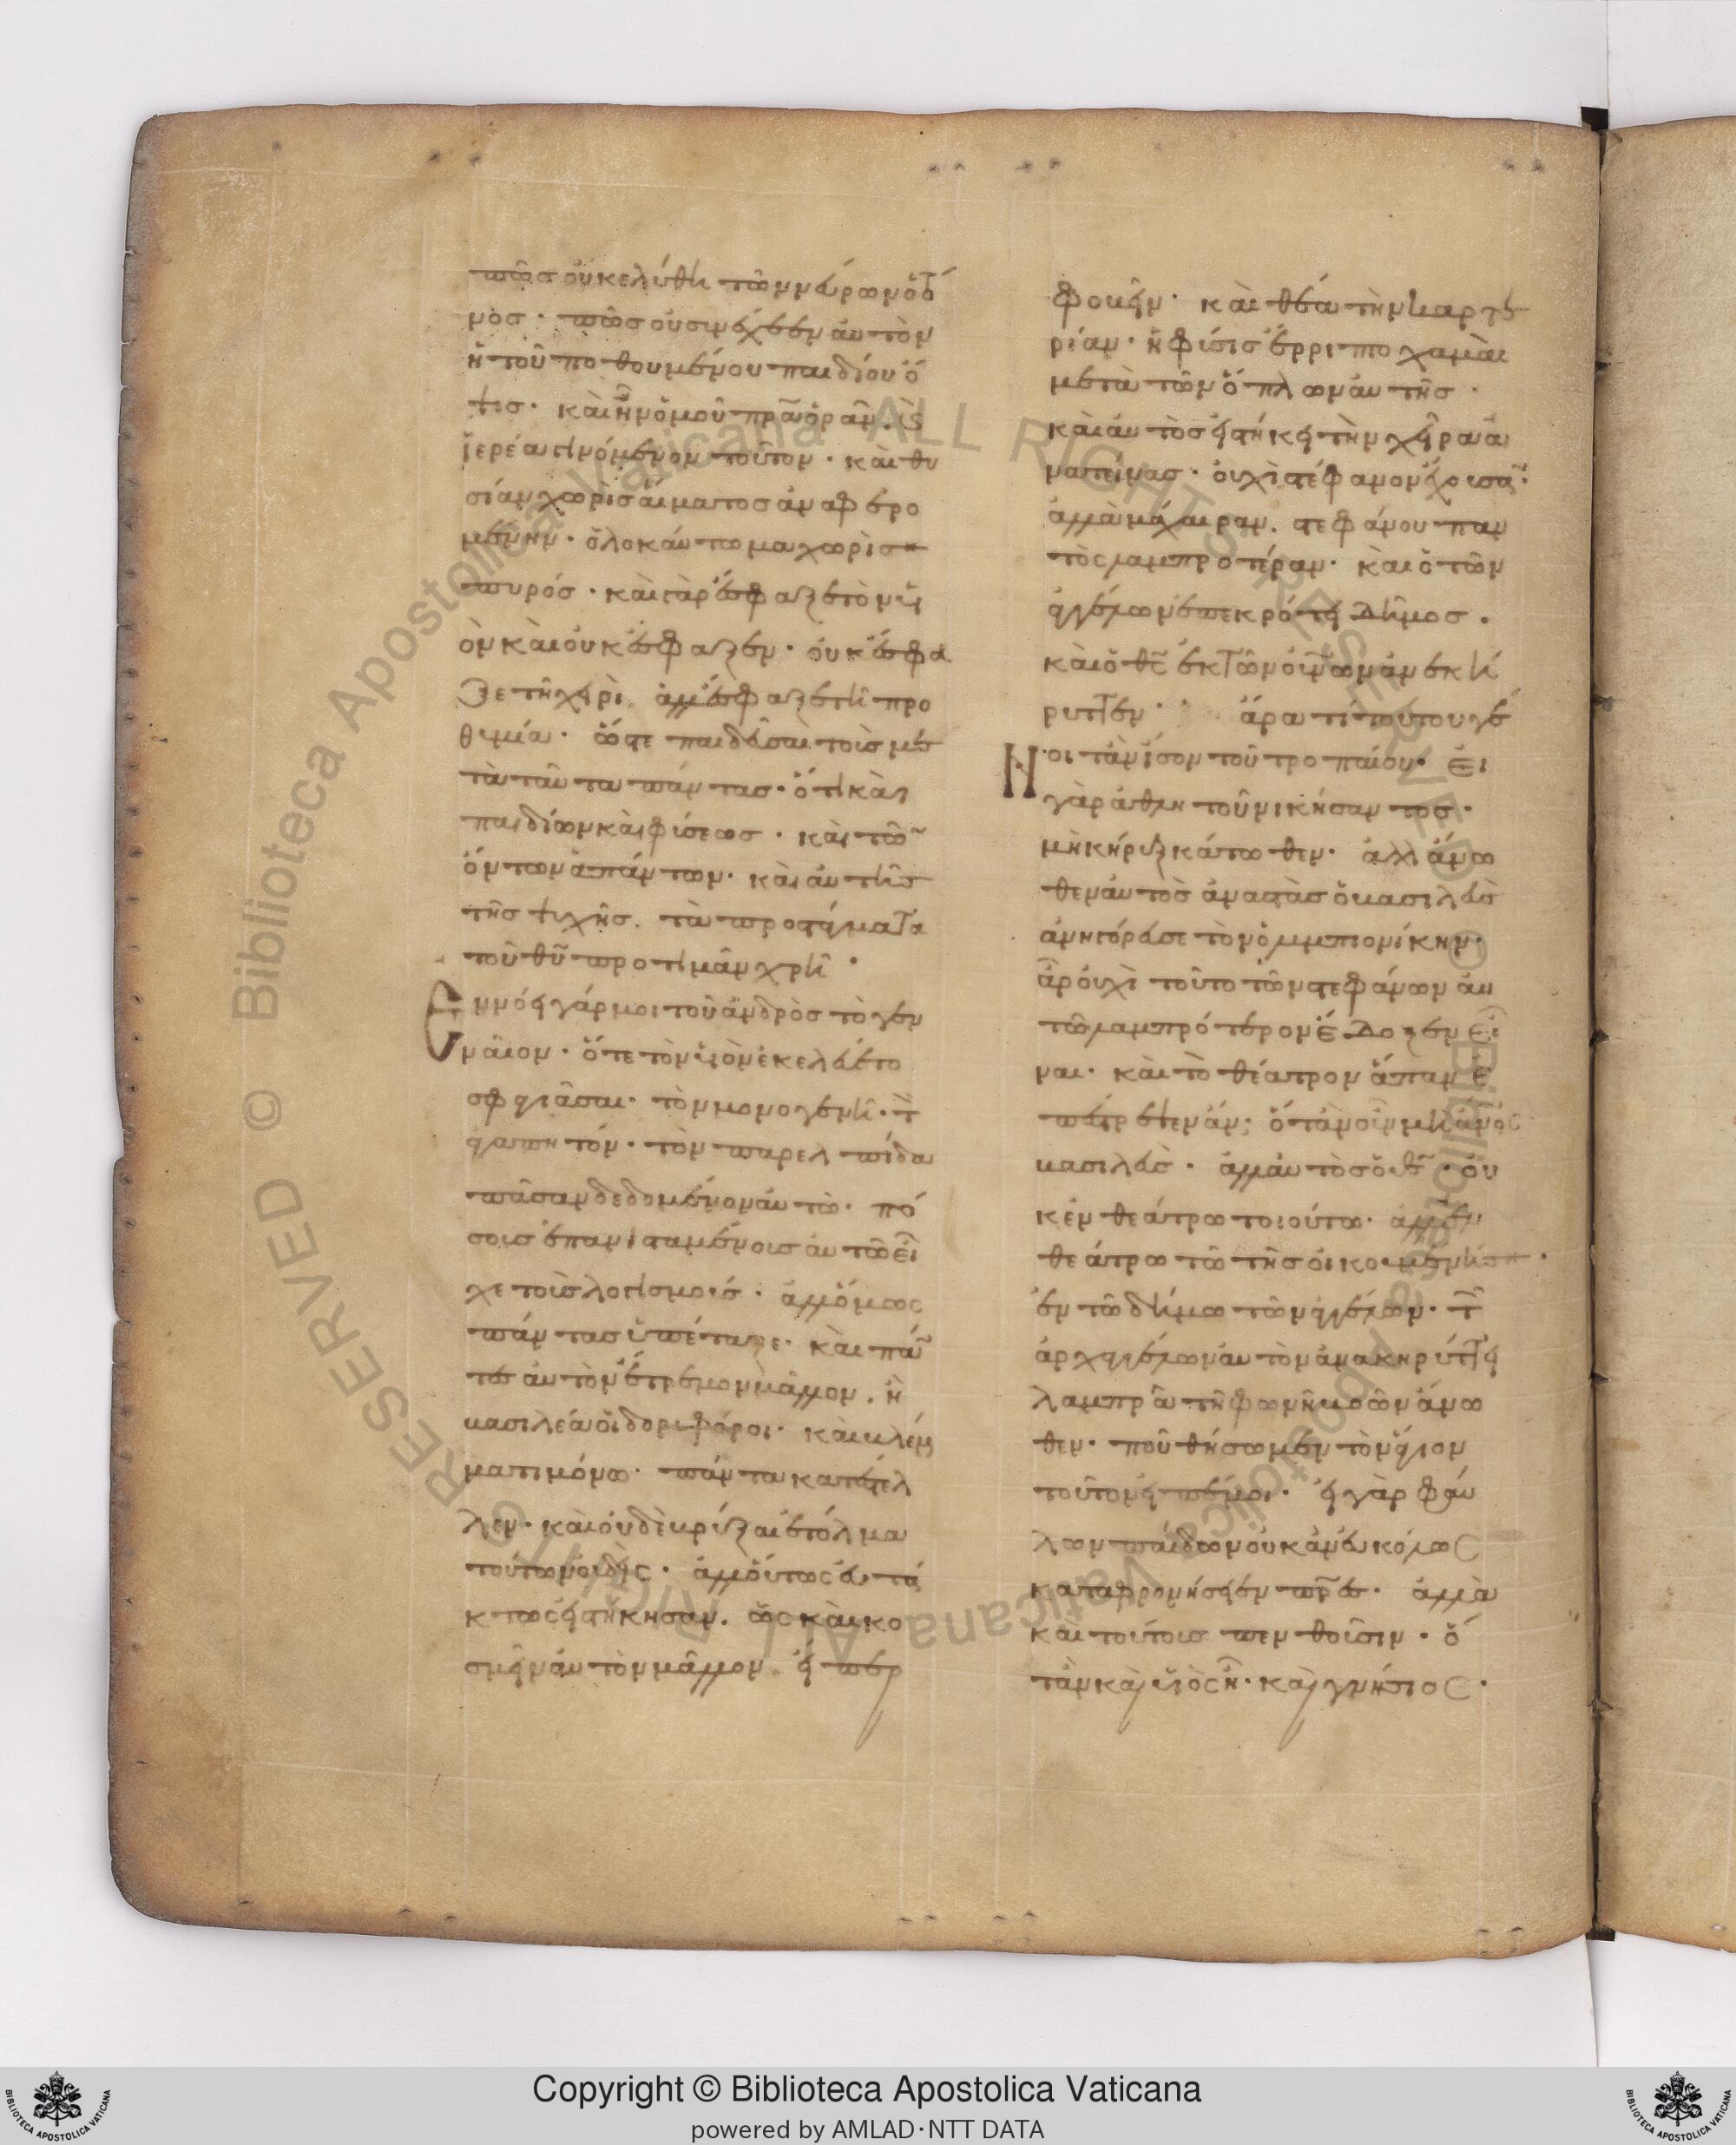 πῶς οὐκ ἐλύθη τῶν νεύρων ὁ τό
νος· πῶς οὐ συνέχεεν αὐτὸν
ἡ τοῦ ποθουμένου παιδίου ὄ
ψις· καὶ ἦν ὁμοῦ πρᾶγμα ὁρᾶν·
ἱερέα γινόμενον τοῦτον· καὶ θυ
σίαν χωρὶς αἵματος ἀναφερο
μένην· ὁλοκαύτωμα χωρὶς
πυρός· καὶ γὰρ ἔσφαξε τὸν υἱ
ὸν καὶ οὐκ ἔσφαξεν· οὐκ ἔσφα
ξε τῇ χειρὶ ἀλλ' ἔσφαξε τῇ προ
θυμίᾳ· ὥστε παιδεῦσαι τοὺς με
τὰ ταῦτα πάντας· ὅτι καὶ
παιδίων καὶ φύσεως· καὶ τῶν
ὄντων ἁπάντων· καὶ αὐτῆς
τῆς ψυχῆς. τὰ προστάγματα
τοῦ θῦ προτιμᾶν χρή·
Ἐννόει γάρ μοι τοῦ ἀνδρὸς τὸ γεν
ναῖον· ὅτε τὸν υἱὸν ἐκελεύετο
σφαγιάσαι· τὸν μονογενῆ· τὸν
ἀγαπητόν· τὸν παρ' ἐλπίδα
πᾶσαν δεδομένον αὐτῷ· πό
σοις ἐπανισταμένοις αὐτῷ εἶ
χε τοῖς λογισμοῖς· ἀλλ' ὅμως
πάντας ὑπέταξε· καὶ πάν
τες αὐτὸν ἔτρεμον μᾶλλον. ἢ
βασιλέα οἱ δορυφόροι· καὶ βλέμ
ματι μόνῳ· πάντα κατέστελ
λεν· καὶ οὐδὲ γρύξαι ἐτόλμα
τούτων οὐδείς· ἀλλ' οὕτως εὐτά
κτως εἱστήκησαν. ὡς καὶ κο
σμεῖν αὐτὸν μᾶλλον. ἤπερ
φοβεῖν· καὶ θέα τὴν μαρτυ
ρίαν· ἡ φύσις ἔρριπτο χαμαὶ
μετὰ τῶν ὅπλων αὐτῆς·
καὶ αὐτὸς εἱστήκει τὴν χεῖρα ἀ
νατείνας· οὐχὶ στέφανον ἔχουσαν·
ἀλλὰ μάχαιραν. στεφάνου παν
τὸς λαμπροτέραν· καὶ ὁ τῶν
ἀγγέλων ἐπεκρότει δῆμος·
καὶ ὁ θς ἐκ τῶν οὐνῶν ἀνεκή
ρυττεν· ἄρα τί τούτου γέ
Νοιτ' ἂν ἴσον τοῦ τροπαίου· εἰ
γὰρ ἀθλητοῦ νικήσαντος·
μὴ κήρυξ κάτωθεν· ἀλλ' ἄνω
θεν αὐτὸς ἀναστὰς ὁ βασιλεὺς
ἀνηγόρευσε τὸν ὀλυμπιονίκην·
ἆρ' οὐχὶ τοῦτο τῶν στεφάνων αὐ
τῷ λαμπρότερον ἔδοξεν εἶ
ναι· καὶ τὸ θέατρον ἅπαν ἐ
πέστρεψεν ἄν; ὅταν οὖν μὴ ἄνος
βασιλεὺς· ἀλλ' αὐτὸς ὁ θς· οὐ
κ ἐν θεάτρῳ τοιούτῳ· ἀλλ' ἐν
θεάτρῳ τῷ τῆς οἰκουμένης·
ἐν τῷ δήμῳ τῶν ἀγγέλων· τῶν
ἀρχαγγέλων αὐτὸν ἀνακηρύττει
λαμπρᾷ τῇ φωνῇ βοῶν ἄνω
θεν· ποῦ θήσωμεν τὸν ἅγιον
τοῦτον εἰπέ μοι· εἰ γὰρ φαύ
λων παίδων οὐκ ἂν εὐκόλως
καταφρονήσειεν πῆρ· ἀλλὰ
καὶ τούτοις πενθοῦσιν· ὅ
ταν καὶ υἱὸς ᾖ· καὶ γνήσιος·